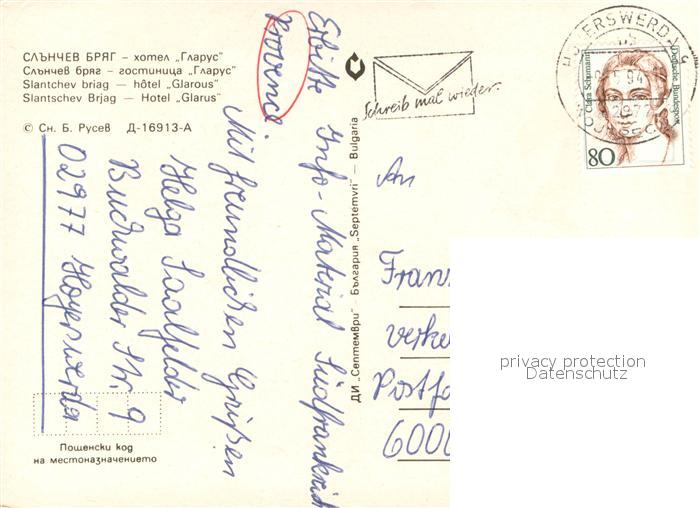 СЛЪНЧЕВ БРЯГ – хотел „Гларус"
Слънчев бряг – гостиница „Гларус"
Slantchev briag — hôtel „Glarous"
Slantschev Brjag — Hotel „Glarus"
© Сн. Б. Русев Д-16913-А
Erbitte Info-Material Südfrankreich
Provence.
Mit freundlichen Grüßen
Helga Saalfelder
Buchwalder Str. 9
02977 Hoyerswerda
Пощенски код
на местоназначението
ДИ „Септември" — България „Septemvri" — Bulgaria
Schreib mal wieder.
HOYERSWERDA
02977
Clara Schumann
Deutsche Bundespost
80
An
Fran
Verke
Postfa
6000
privacy protection
Datenschutz